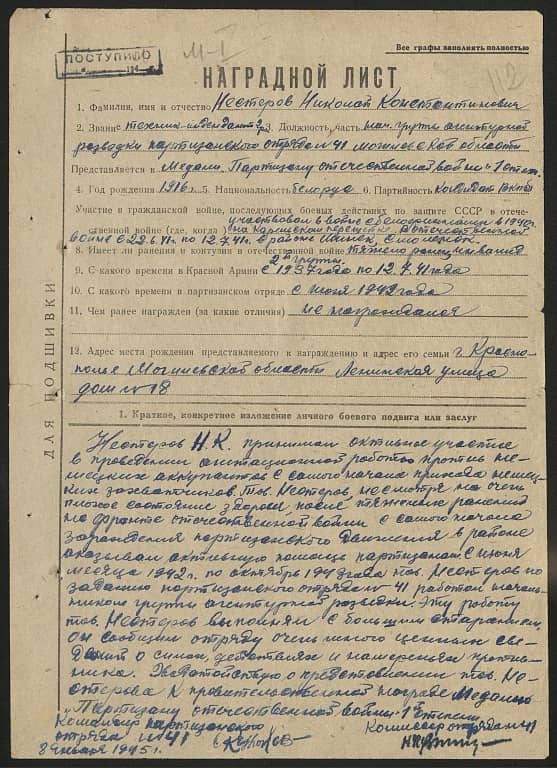 ПОСТУПИЛО
М-I
Все графы заполнять полностью
112
НАГРАДНОЙ ЛИСТ
1. Фамилия, имя и отчество Нестеров Николай Константинович
2. Звание техник-интендант 2р. 3. Должность, часть нач. группы агентурной
разведки партизанского отряда № 41 Могилевской области
Представляется к Медали „Партизану отечественной войны" 1 степ.
4. Год рождения 1916 г. 5. Национальность белорус 6. Партийность кандидат ВКП(б)
Участие в гражданской войне, последующих боевых действиях по защите СССР и отече-
ственной войне (где, когда) участвовал в войне с белофиннами в 1940 г.
на Карельском перешейке, в отечественной
войне с 22.6.41 г. по 12.7.41 г. в районе
8. Имеет ли ранения и контузии в отечественной войне тяжело ранен, инвалид
2ой группы
9. С какого времени в Красной Армии с 1937 года по 12.7.41 года
10. С какого времени в партизанском отряде с июня 1942 года
11. Чем ранее награжден (за какие отличия) не награждался
12. Адрес места рождения представляемого к награждению и адрес его семьи г. Красно-
полье Могилевской области Ленинская улица
дом № 18
ДЛЯ ПОДШИВКИ
1. Краткое, конкретное изложение личного боевого подвига или заслуг
Нестеров Н.К. принимал активное участие
в проведении агитационной работы против не-
мецких оккупантов с самого начала прихода немец-
ких захватчиков. Тов. Нестеров, несмотря на очень
плохое состояние здоровья, после тяжелых ранений
на фронте отечественной войны с самого начала
зарождения партизанского движения в районе
оказывал активную помощь партизанам. С июня
месяца 1942 г. по октябрь 1943 года тов. Нестеров по
заданию партизанского отряда № 41 работал началь-
ником группы агентурной разведки. Эту работу
тов. Нестеров выполнял с большим старанием,
он сообщил отряду очень много ценных све-
дений о силах, действиях и намерениях против-
ника. Ходатайствую о представлении тов. Не-
стерова к правительственной награде Медалью
„Партизану отечественной войны" 1й степени
Командир партизанского
отряда № 41
Комиссар отряда № 41
8 января 1945 г.